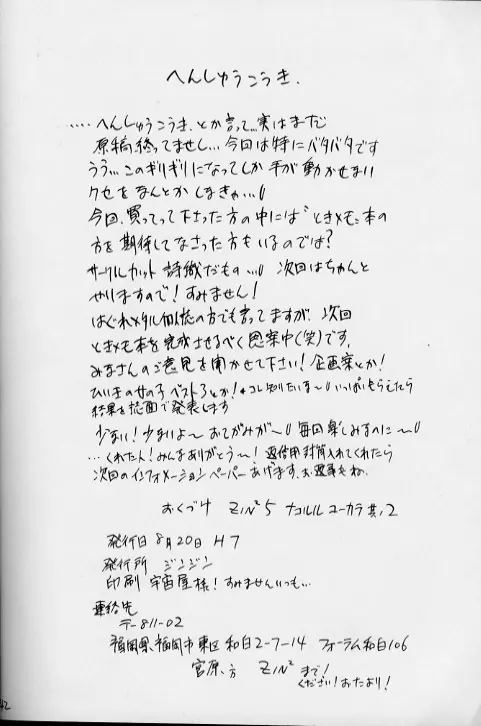 へんしゅうこうき.
....へんしゅうこうき.とか言って...実はまだ
原稿終ってませし...今回は特にバタバタです
うう...このギリギリになってしか手が動かせない
クセをなんとかしなきゃ...
今回、買ってって下さった方の中には"ときメモ"本の
方を期待してなさった方もいるのでは?
サークルカット 詩織だもの...次回はちゃんと
やりますので!すみません!
はぐれメタル の方でも言ってますが、次回
ときメモ本を完成させるべく思案中(笑)です。
みなさんのご意見を聞かせて下さい!企画案とか!
ひいきの女の子ベスト3とか!←コレ知りたいな〜いっぱいもらえたら
結果を誌面で発表します
少ない!少ないよ〜おてがみが〜 毎回楽しみなのに〜
...くれた人!みんなありがとう〜!返信用封筒入れてくれたら
次回のインフォメーションペーパーあげます。お返事もね。
おくづけ ZIN²5 ナコルル ユーカラ其ノ2
発行日 8月20日 H7
発行所 ジンジン
印刷 宇宙屋様!すみませんいつも...
連絡先
〒811-02
福岡県、福岡市東区 和白2-7-14 フォーラム和白106
宮原、方 ZIN² まで!
ください!おたより!
42